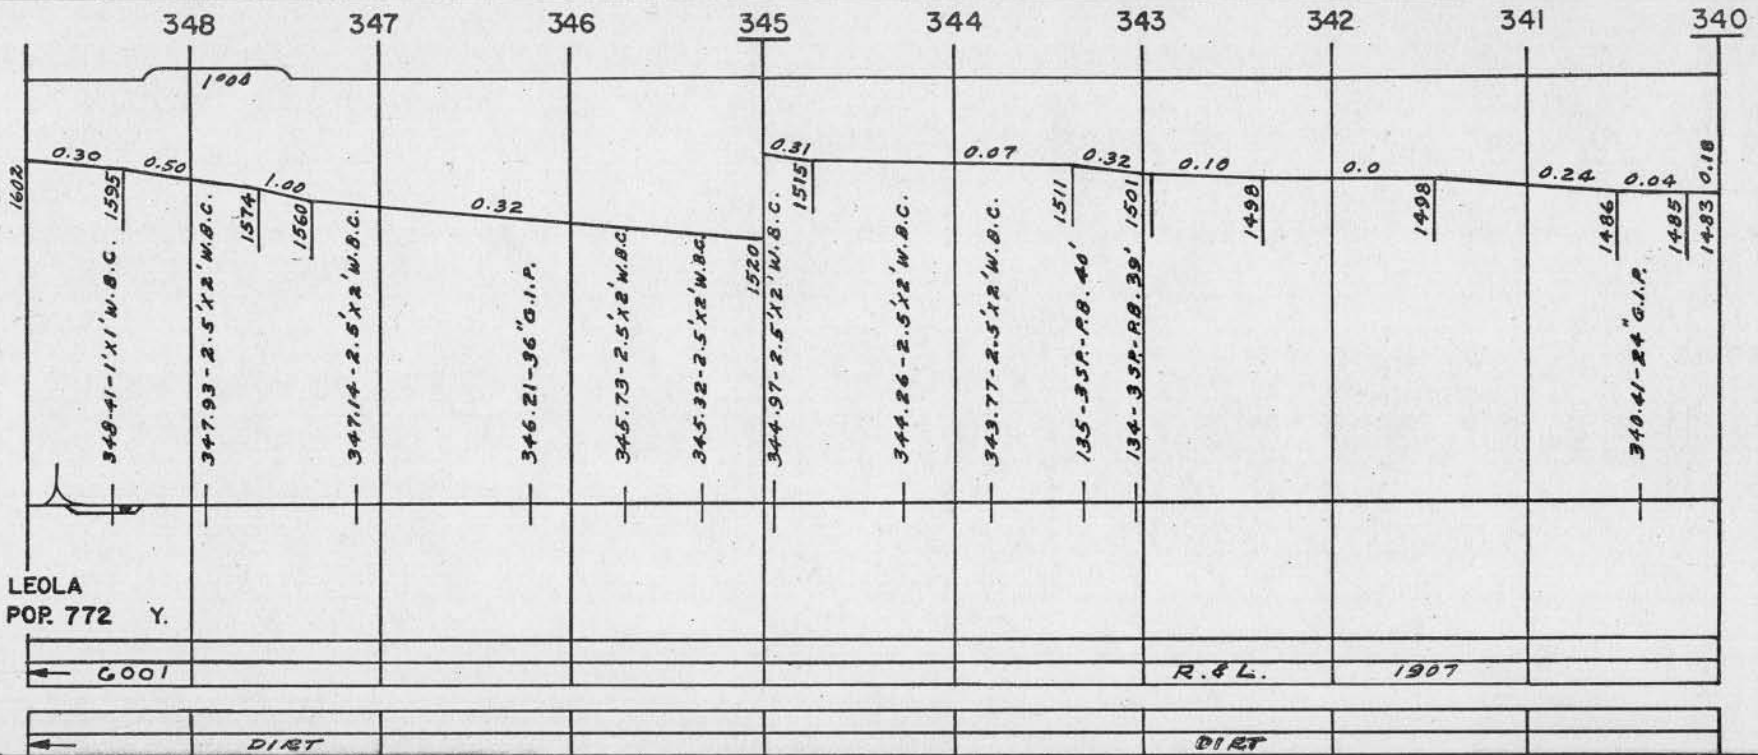 348 347 346 345 344 343 342 341 340
1°08'
0.30 0.50 1.00 0.32 0.31 0.07 0.32 0.10 0.0 0.24 0.04 0.18
1602 1595 1574 1560 1520 1515 1511 1501 1498 1498 1486 1485 1483
348-41-1'X1' W.B.C.
347.93-2.5'X2' W.B.C.
347.14-2.5'X2' W.B.C.
346.21-36" G.I.P.
345.73-2.5'X2' W.B.C.
345.32-2.5'X2' W.B.C.
344.97-2.5'X2' W.B.C.
344.26-2.5'X2' W.B.C.
343.77-2.5'X2' W.B.C.
135-3 SP.-P.B. 40'
134-3 SP.-P.B. 39'
340.41-24" G.I.P.
LEOLA
POP. 772 Y.
6001 R. & L. 1907
DIRT DIRT